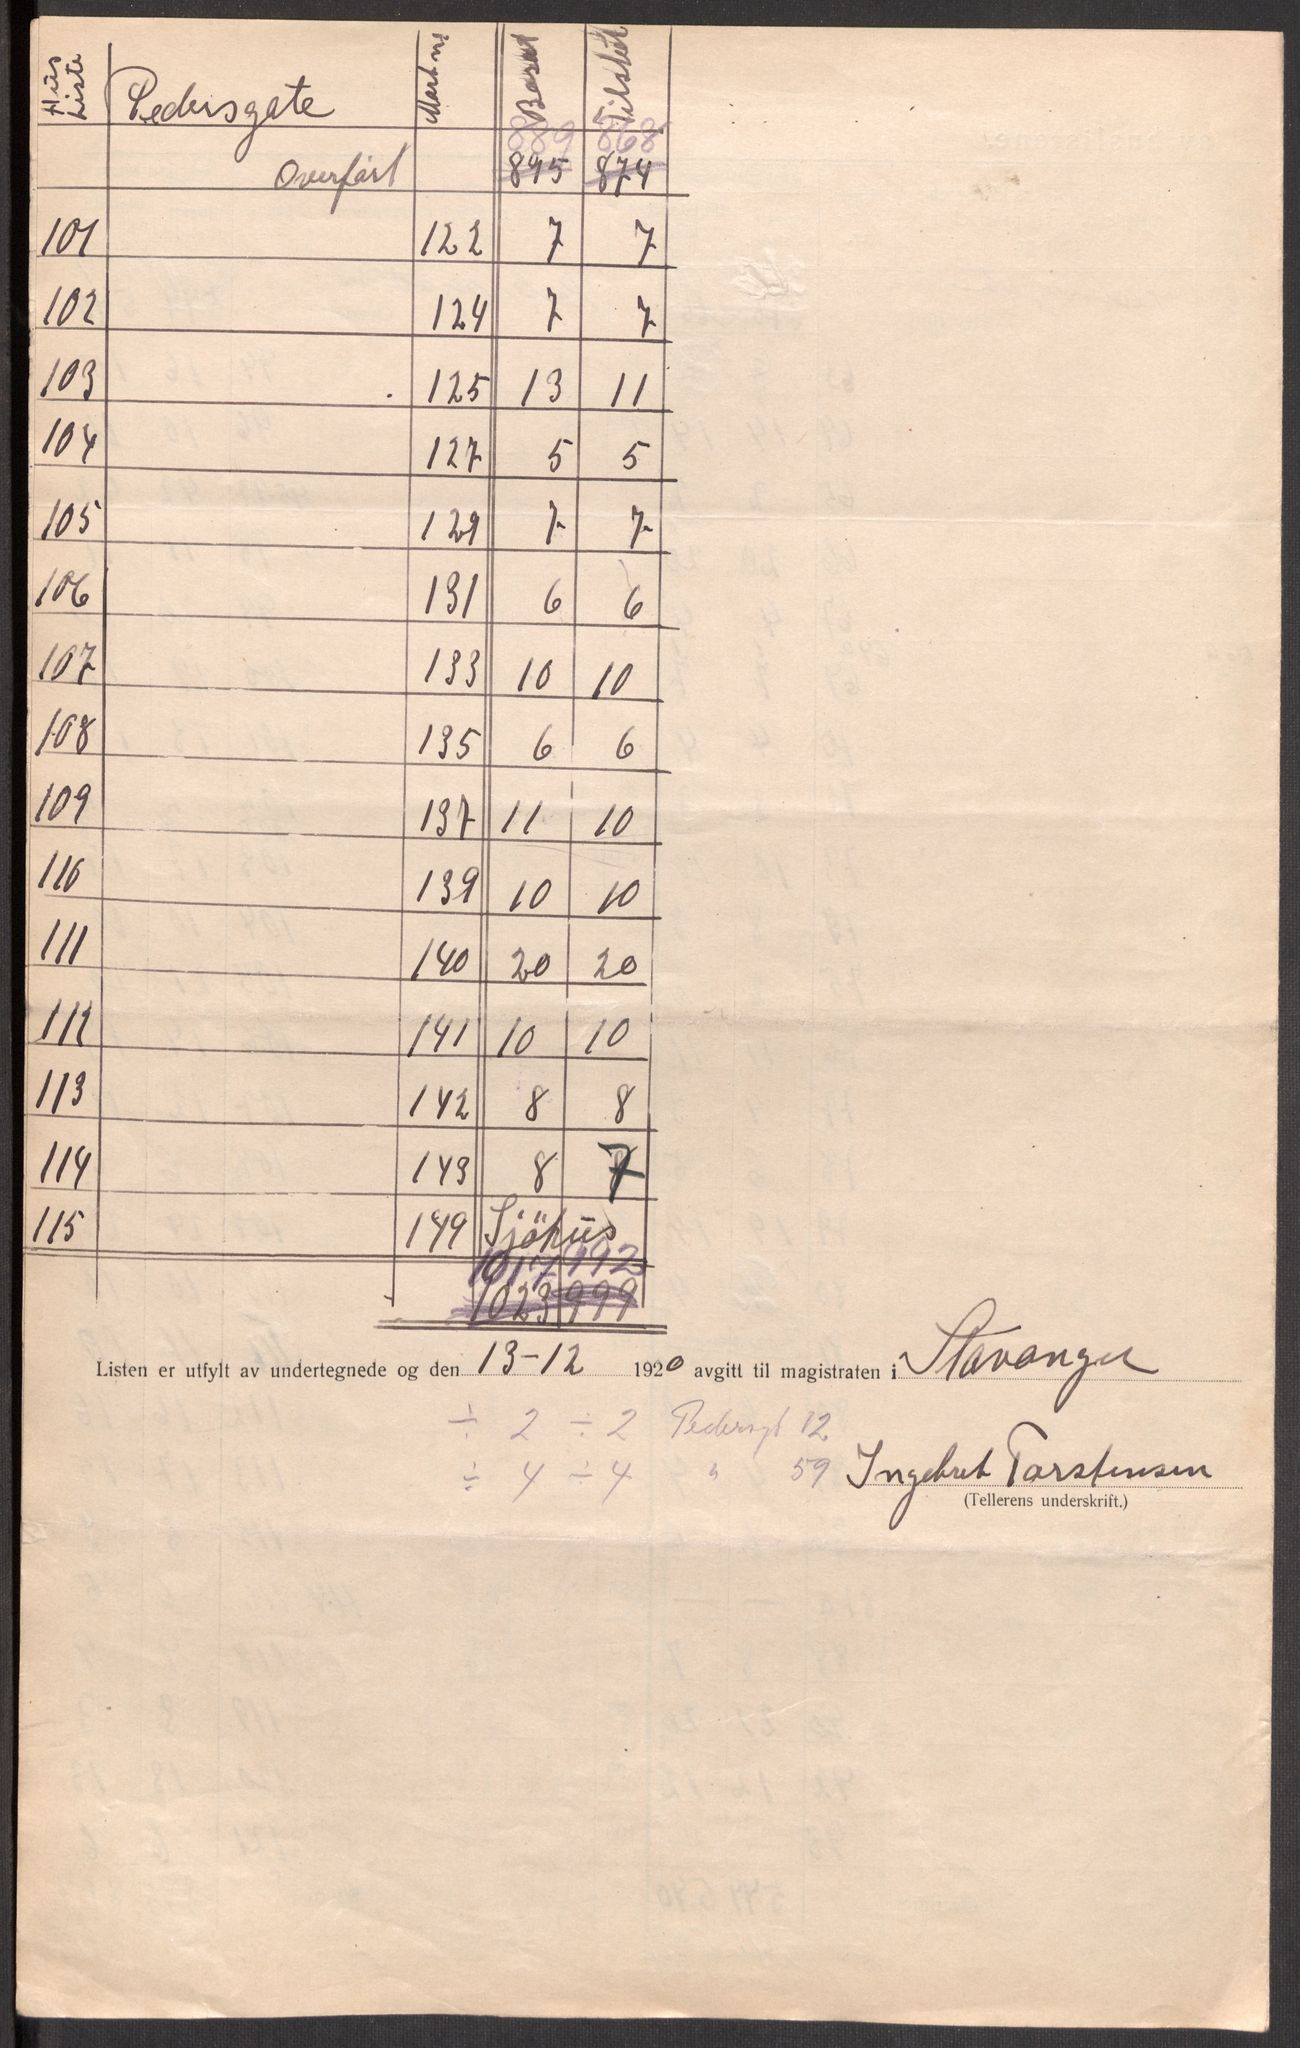 Hus Liste Pedersgate Matr nr Bosat Tilsted
889 868
Overført 895 874
101 122 7 7
102 124 7 7
103 125 13 11
104 127 5 5
105 129 7 7
106 131 6 6
107 133 10 10
108 135 6 6
109 137 11 10
110 139 10 10
111 140 20 20
112 141 10 10
113 142 8 8
114 143 8 7
115 149 Sjöhus
1017 992
1023 999
Listen er utfylt av undertegnede og den 13-12 1920 avgitt til magistraten i Stavanger
÷ 2 ÷ 2 Pedersgt 12
÷ 4 ÷ 4 " 59 Ingebret Torstensen
(Tellerens underskrift.)